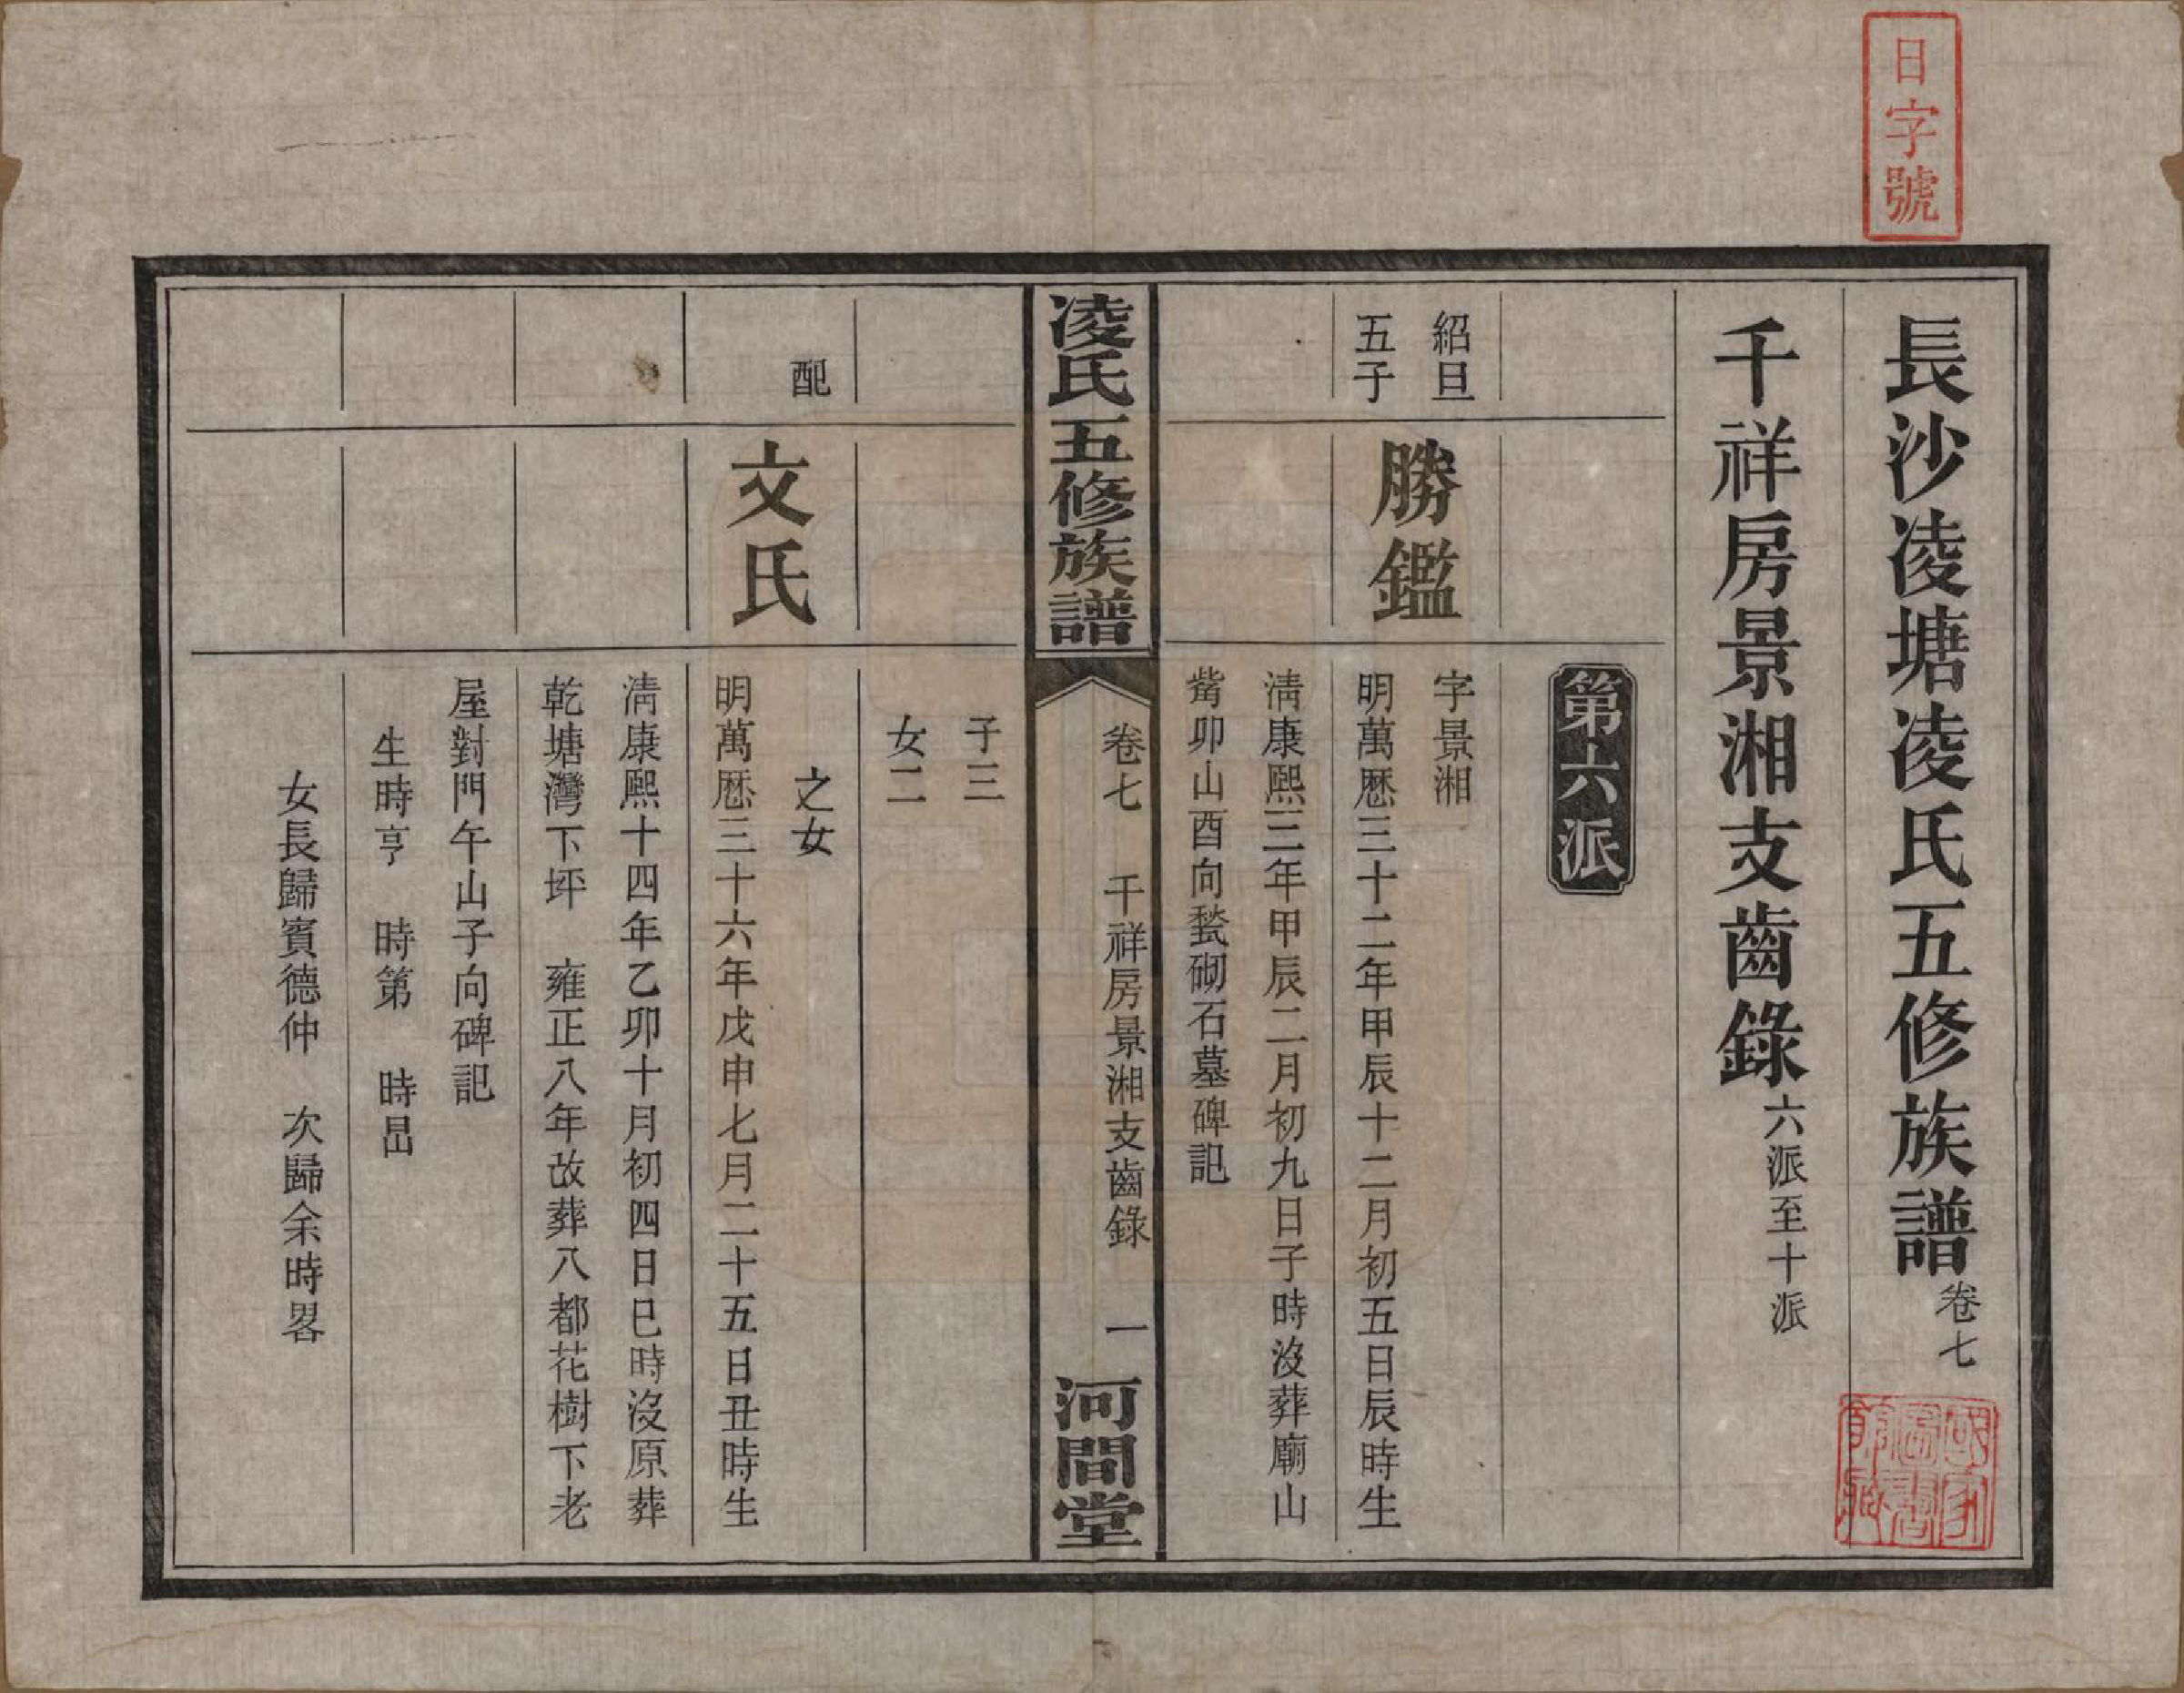 日字號
長沙凌塘凌氏五修族譜卷七
千祥房景湘支齒錄六派至十派
第六派
紹旦
五子
勝鑑
字景湘
明萬厯三十二年甲辰十二月初五日辰時生
淸康熙三年甲辰二月初九日子時沒葬廟山
觜卯山酉向甃砌石墓碑記
凌氏五修族譜
卷七 千祥房景湘支齒錄 一
河間堂
子三
女二
配
文氏
之女
明萬厯三十六年戊申七月二十五日丑時生
淸康熙十四年乙卯十月初四日巳時沒原葬
乾塘灣下坪 雍正八年改葬八都花樹下老
屋對門午山子向碑記
生時亨 時第 時昌
女長歸賓德仲 次歸余時畧